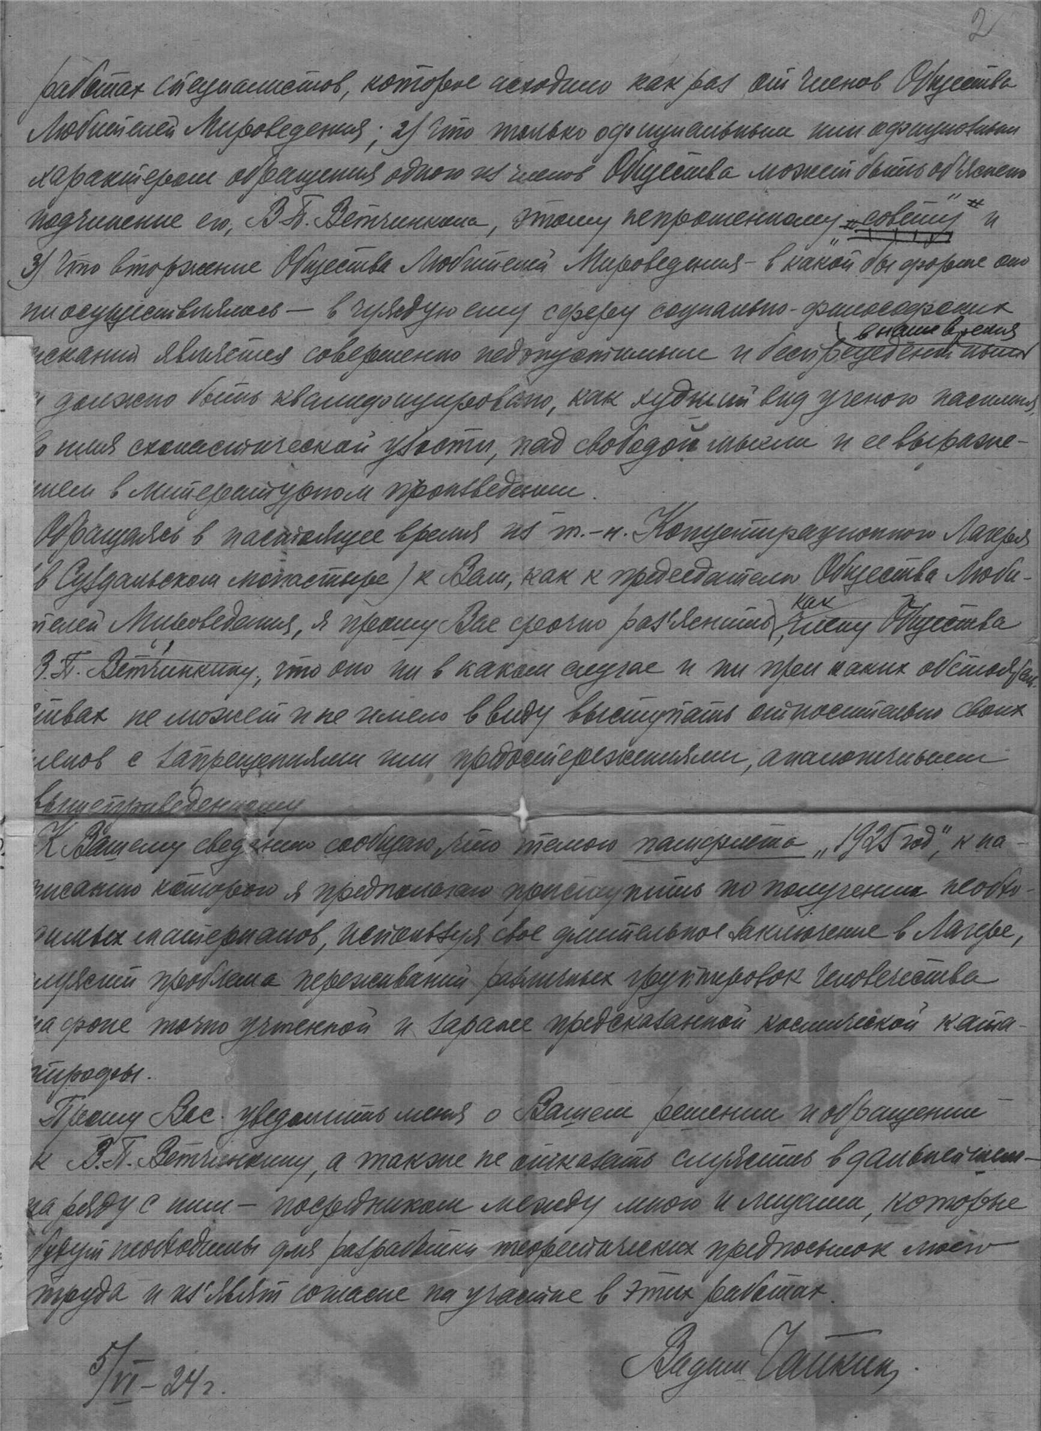 2
работах специалистов, которое исходило как раз от членов Общества
Любителей Мироведения; 2) что только официальным или официозным
характером обращения одного из членов Общества может быть об'яснено
подчинение его, В.П. Ветчинкина, этому непрошенному „совету" и
3) что вторжение Общества Любителей Мироведения – в какой бы форме оно
ни осуществлялось – в чуждую ему сферу социально-философских
в наше время
исканий является совершенно недопустимым и беспрецедентным
и должно быть квалифицировано, как худший вид ученого насилия,
во имя схоластической узости, над свободой мысли и ее выраже-
нием в литературном произведении.
Обращаясь в настоящее время из т.-н. Концентрационного Лагеря
(в Суздальском монастыре) к Вам, как к председателю Общества Люби-
телей Мироведения, я прошу Вас срочно раз'яснить, как члену Общества
В.П. Ветчинкину, что оно ни в каком случае и ни при каких обстоятель-
ствах не может и не имело в виду выступать относительно своих
членов с запрещениями или предостережениями, аналогичными
вышеприведенному
К Вашему сведению сообщаю, что темою памфлета „1925 год", к на-
писанию которого я предполагаю приступить по получении необхо-
димых материалов, используя свое длительное заключение в Лагере,
служит проблема переживаний различных группировок человечества
на фоне точно учтенной и заранее предсказанной космической ката-
строфы.
Прошу Вас уведомить меня о Вашем решении и обращении
к В.П. Ветчинкину, а также не отказать служить в дальнейшем –
на ряду с ним – посредником между мною и лицами, которые
будут необходимы для разработки теоретических предпосылок моего
труда и из'явят согласие на участие в этих работах.
5/VI – 24 г.
Вадим Чайкин.